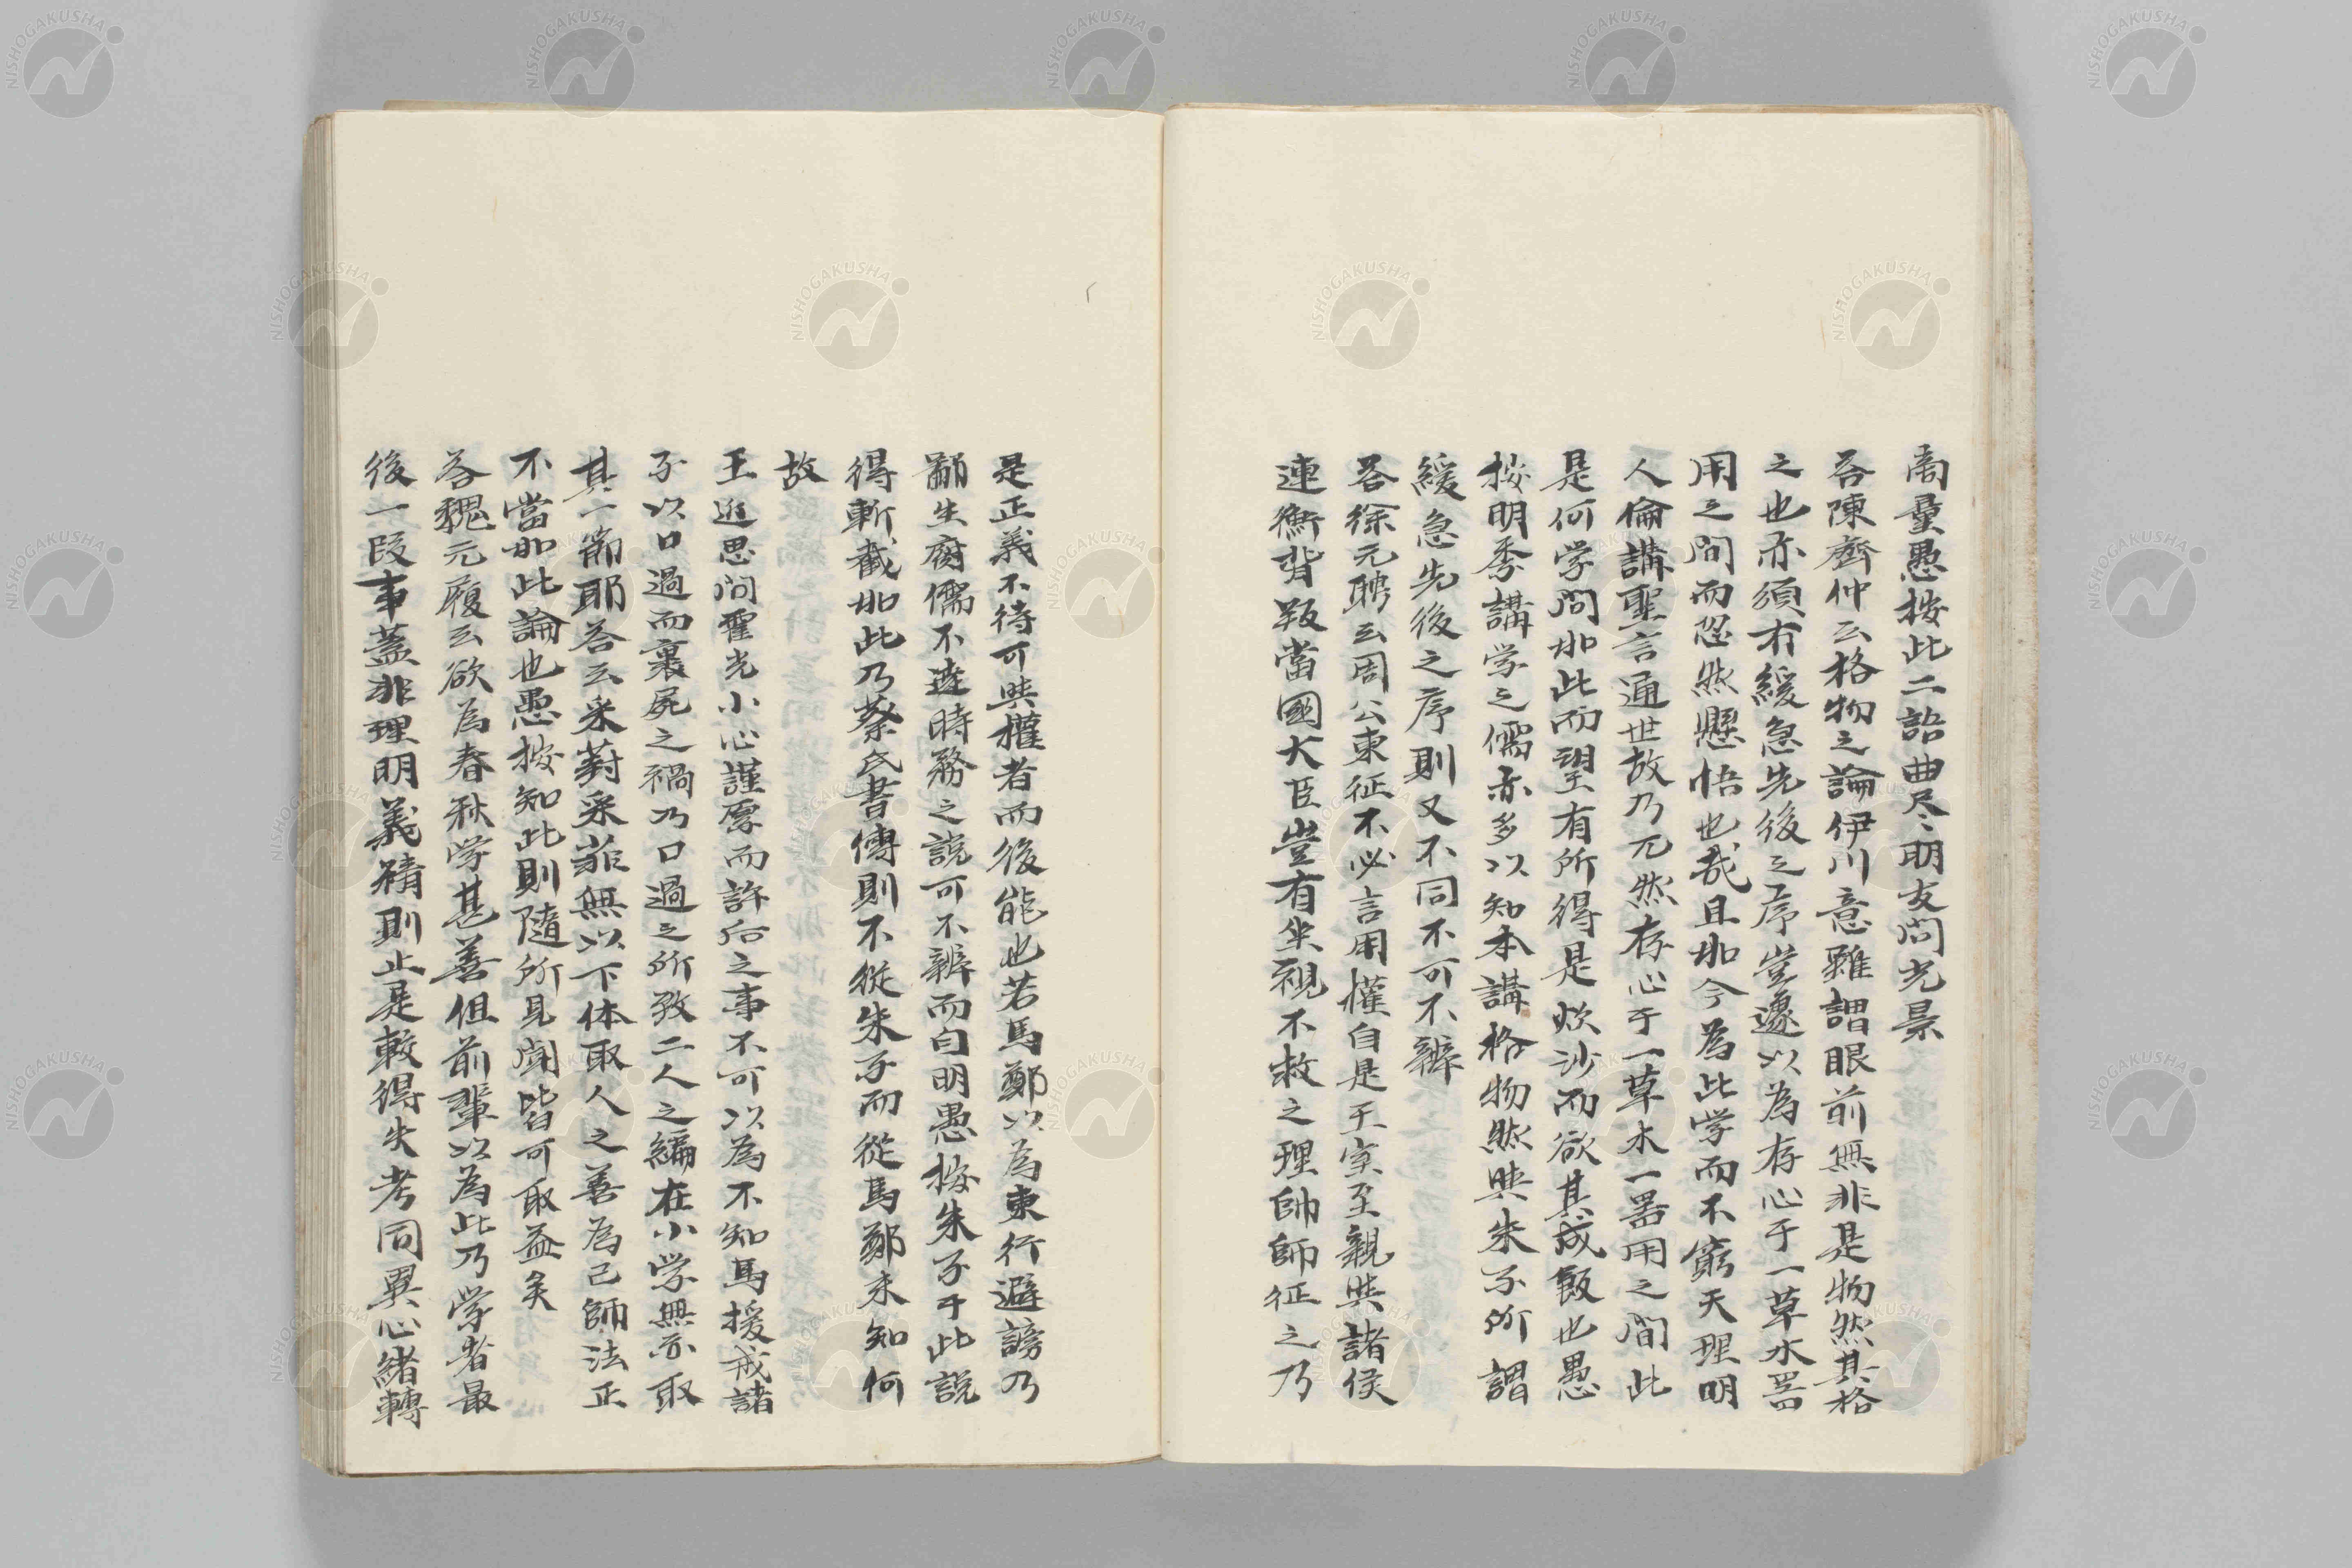 商量愚按此二詒曲尽朋友問光景
答陳齊仲云格物之論伊川意雖謂眼前無非是物然其格
之也亦須有緩急先後之序豈遽以為存心于一草水器
用之間而忽然懸悟也哉且如今為此学而不窮天理明
人倫講聖言通世故乃兀然存心于一草木一器用之間此
是何学問如此而望有所得是炊沙而欲其成飯也愚
按明季講学之儒亦多以知本講格物然與朱子所謂
緩急先後之序則又不同不可不辨
答徐元聘云周公東征不必言用權自是王室至親與諸侯
連衡背叛當國大臣豈有坐視不救之理帥師征之乃
是正義不待可與權者而後能也若馬鄭以為東行避謗乃
鄙生腐儒不達時務之說可不辨而自明愚按朱子于此說
得斬截如此乃蔡氏書傳則不従朱子而從馬鄭未知何
故
王近思問霍光小心謹厚而許后之事不可以為不知馬援戒諸
子以口過而裹屍之禍乃口過之所致二人之編在小学無亦取
其一節耶答云采葑采菲無以下体取人之善為己師法正
不當如此論也愚按知此則隨所見聞皆可取益矣
答魏元履云欲為春秋学甚善但前輩以為此乃学者最
後一段事蓋非理明義精則止是較得失考同異心緒轉
NISHOGAKUSHA